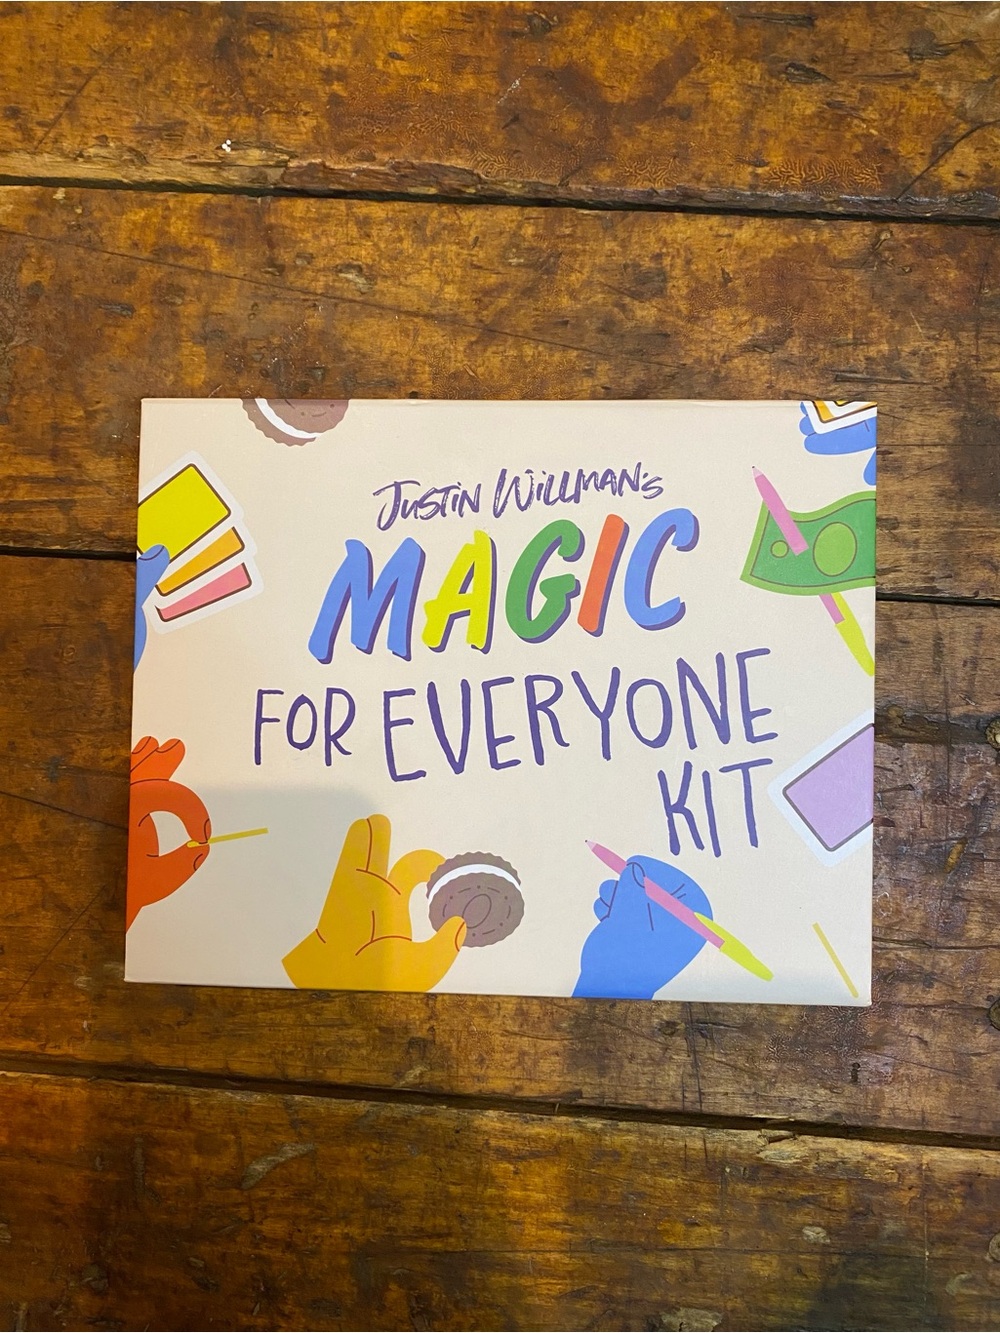 JUSTIN WILLMAN'S
MAGIC
FOR EVERYONE
KIT